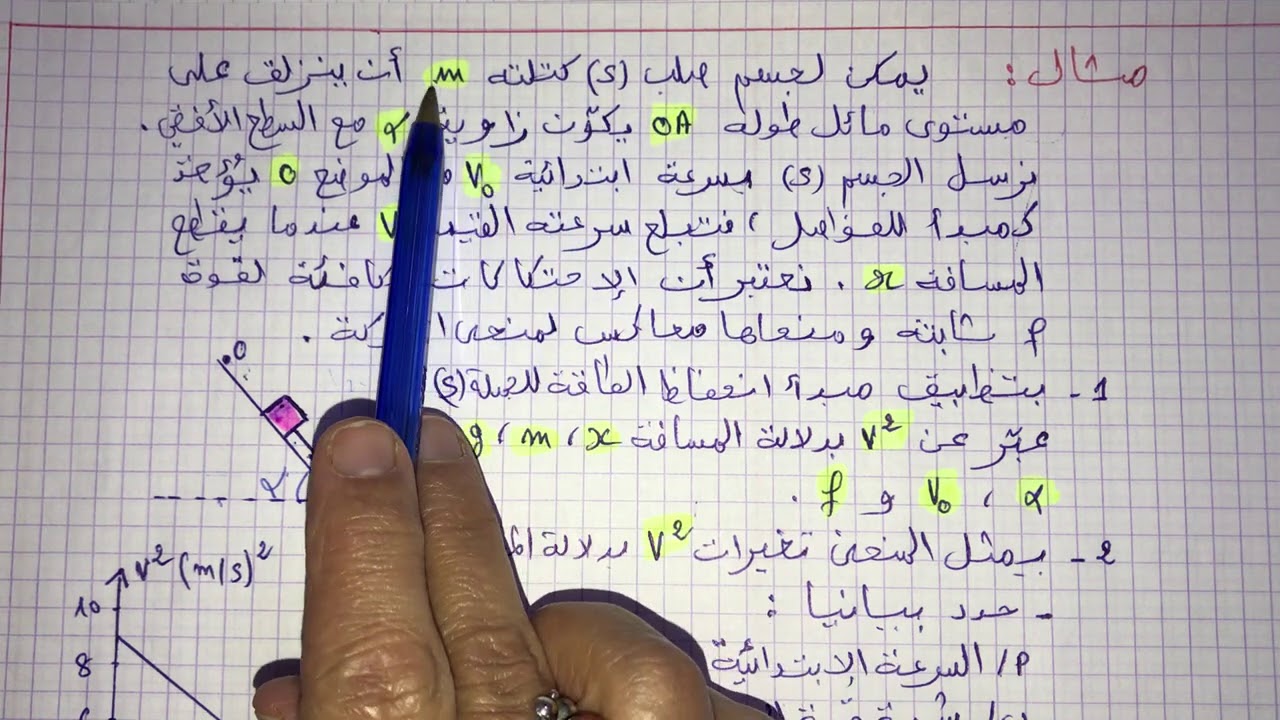 مثال: يمكن لجسم صلب (S) كتلته m أن ينزلق على
مستوى مائل طوله OA يكوّن زاوية α مع السطح الأفقي.
نرسل الجسم (S) بسرعة ابتدائية V₀ الموضع O يؤخذ
كمبدأ للفواصل، فتبلغ سرعته القيمة V عندما يقطع
المسافة x. نعتبر أن الإحتكاكات مكافئة لقوة
f ثابتة ومنحاها معاكس لمنحى الحركة.
1 - بتطبيق مبدأ انحفاظ الطاقة للجملة (S)
عبّر عن V² بدلالة المسافة x، m، g
α، V₀ و f.
2 - يمثل المنحنى تغيرات V² بدلالة
- حدد بيانيا:
P/ السرعة الإبتدائية
O
α
V² (m/s)²
10
8
6